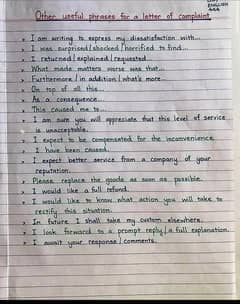 ENGLISH
Other useful phrases for a letter of complaint
I am writing to express my dissatisfaction with...
I was surprised/shocked/horrified to find...
I returned/explained/requested...
What made matters worse was that...
Furthermore/in addition/what's more...
On top of all this...
As a consequence...
This caused me to...
I am sure you will appreciate that this level of service
is unacceptable.
I expect to be compensated for the inconvenience
I have been caused.
I expect better service from a company of your
reputation.
Please replace the goods as soon as possible
I would like a full refund.
I would like to know what action you will take to
rectify this situation.
In future I shall take my custom elsewhere.
I look forward to a prompt reply/a full explanation.
I await your response/comments.